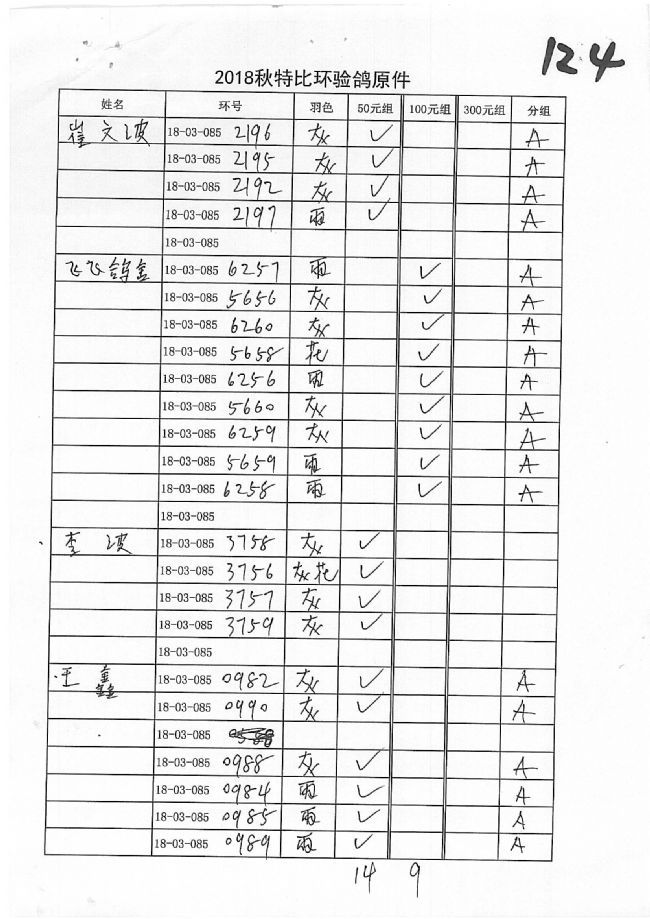 124
2018秋特比环验鸽原件
姓名 环号 羽色 50元组 100元组 300元组 分组
崔文波 18-03-085 2196 灰 ✓ A
18-03-085 2195 灰 ✓ A
18-03-085 2192 灰 ✓ A
18-03-085 2197 雨 ✓ A
18-03-085
飞飞鸽舍 18-03-085 6257 雨 ✓ A
18-03-085 5656 灰 ✓ A
18-03-085 6260 灰 ✓ A
18-03-085 5658 花 ✓ A
18-03-085 6256 雨 ✓ A
18-03-085 5660 灰 ✓ A
18-03-085 6259 灰 ✓ A
18-03-085 5659 雨 ✓ A
18-03-085 6258 雨 ✓ A
18-03-085
李波 18-03-085 3758 灰 ✓
18-03-085 3756 灰花 ✓
18-03-085 3757 灰 ✓
18-03-085 3759 灰 ✓
18-03-085
王鑫 18-03-085 0982 灰 ✓ A
18-03-085 0990 灰 ✓ A
18-03-085
18-03-085 0988 灰 ✓ A
18-03-085 0984 雨 ✓ A
18-03-085 0985 雨 ✓ A
18-03-085 0989 雨 ✓ A
14 9